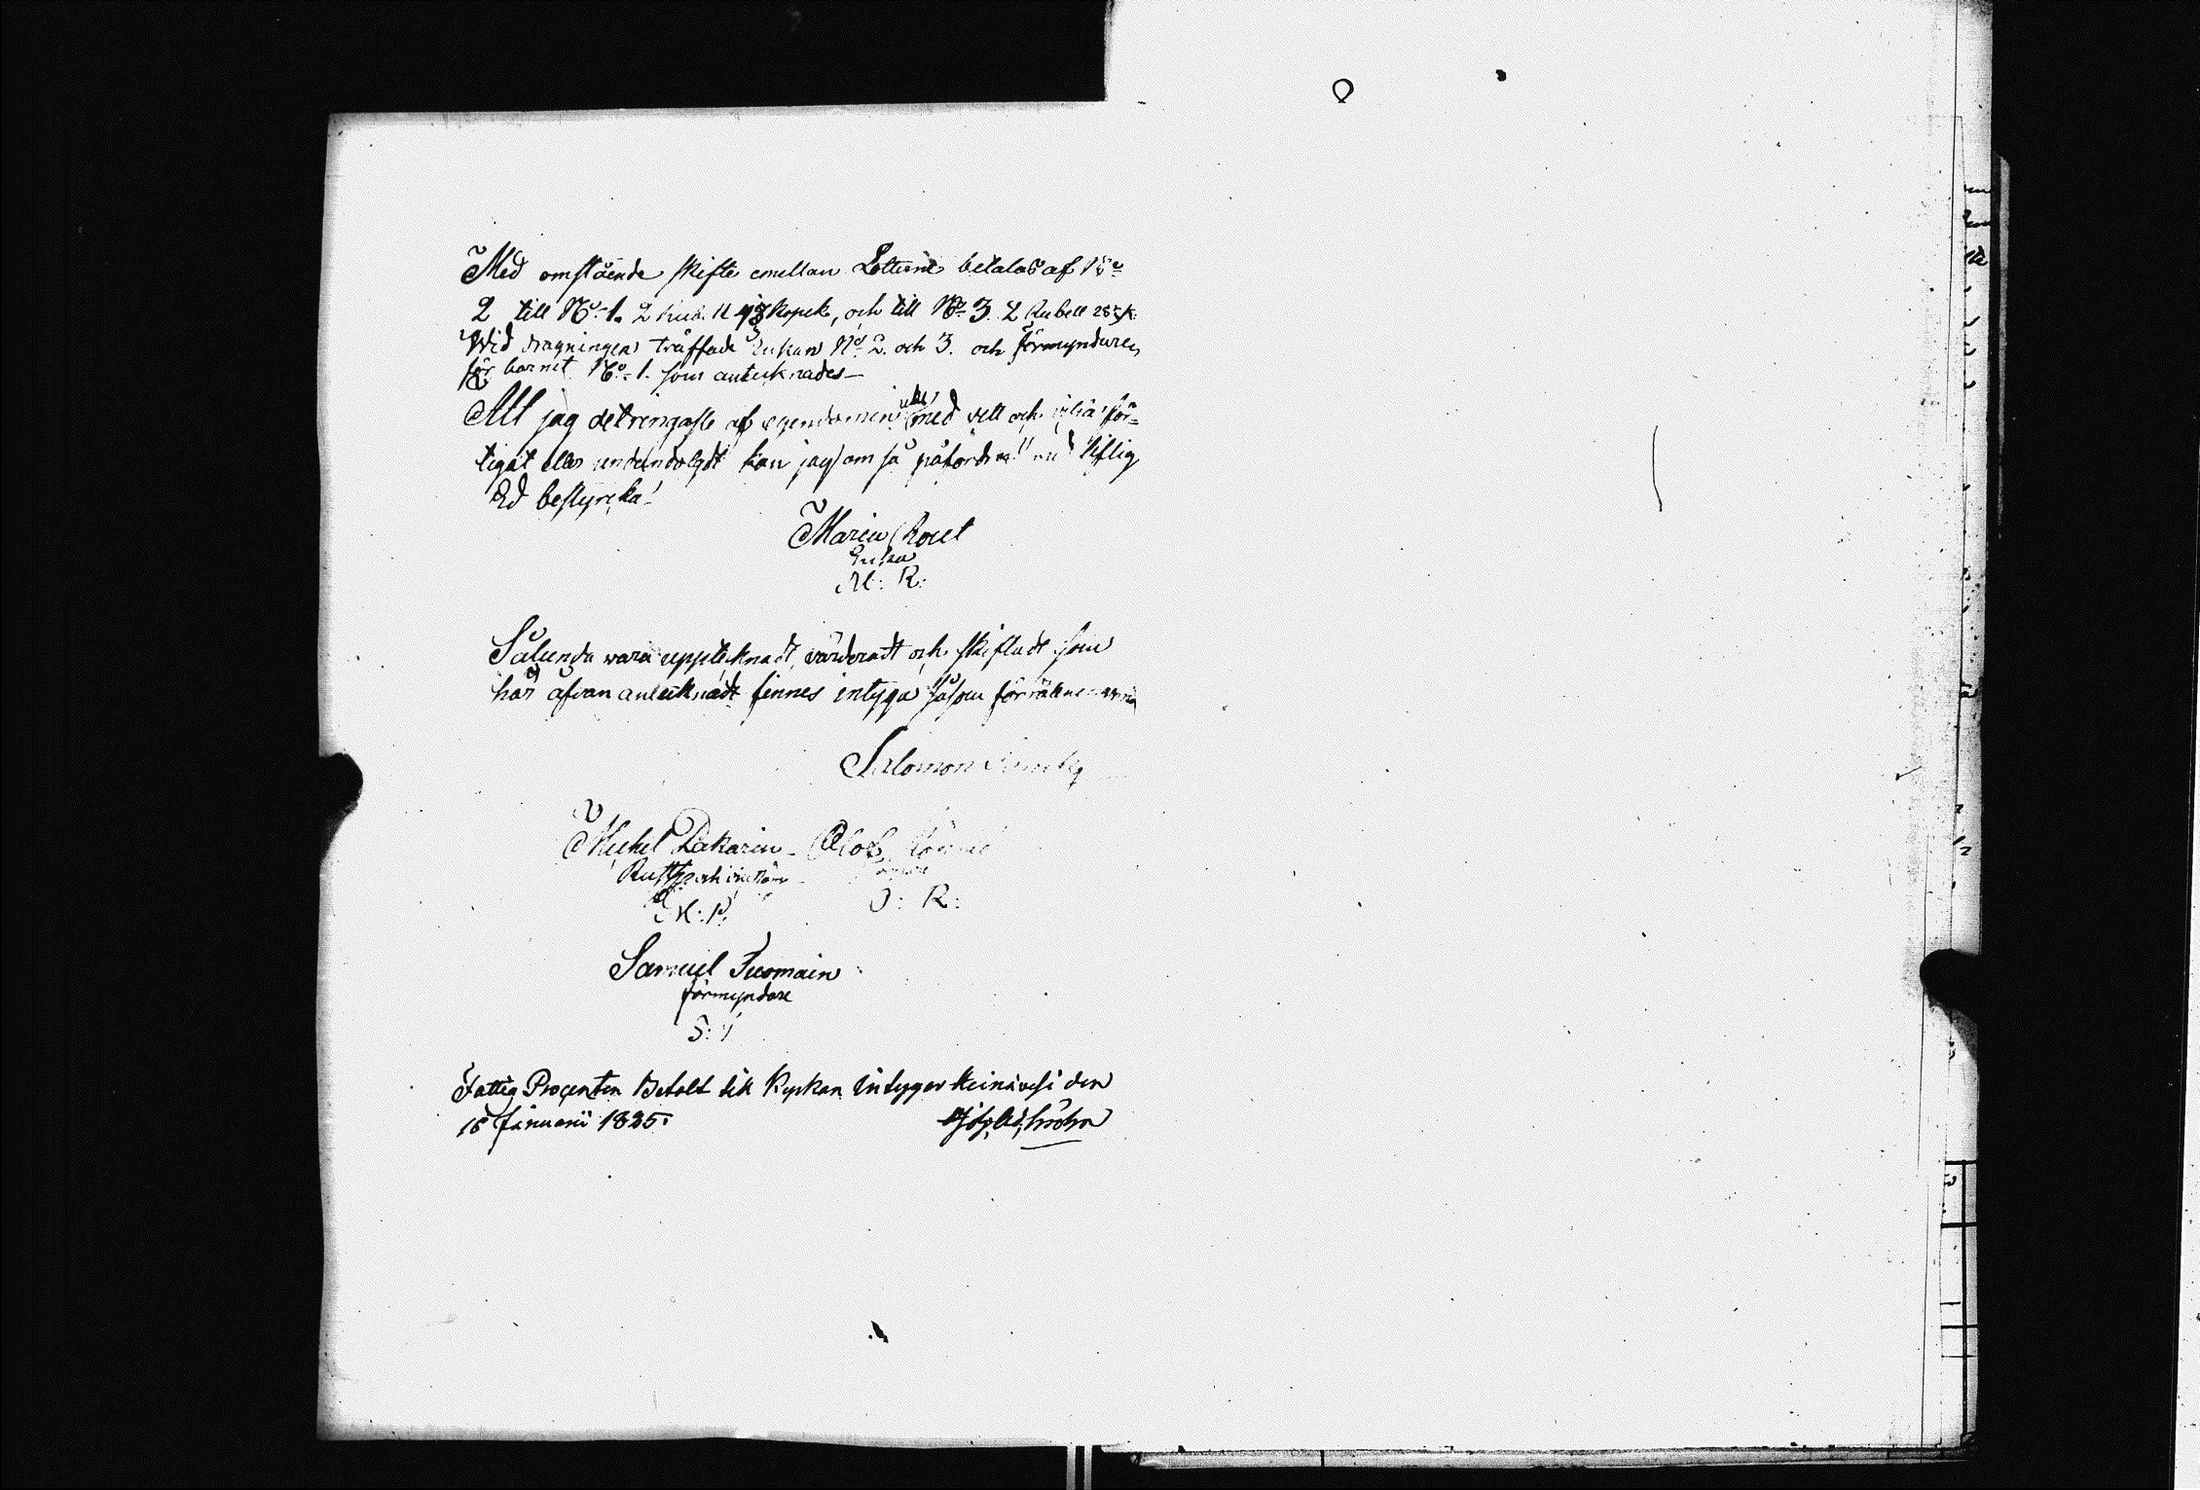 Med omstående skifte emellan Lotterne betalas af No
2 till No 1. 2 Rub. 11 kopek, och till No 3. 2 Rubell 28 k:
Wid dragningen träffade Enkan No 2. och 3. och förmyndaren
för barnet No 1. som antecknades
Att jag det ringaste af egendomen icke med vett och vilja för=
tigat eller undandolgdt kan jag om så påfordras med liflig
Ed bestyrcka!
Maria Rouet
Enka
M: R:
Sålunda wara upptecknadt, värderadt och skiftadt som
här ofvan antecknadt finnes intyga såsom förrättningsmän
Salomon
Michel Pakarin Olof
Rustho och
M: P: O: R:
Samuel Tuomain
förmyndare
S: T
Fattig Procenten Betalt till Kyrkan intygar Heinävesi den
18 Januarii 1835.